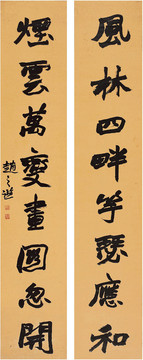 風林四畔竽瑟應和
煙雲萬變畫圖忽開
趙之謙